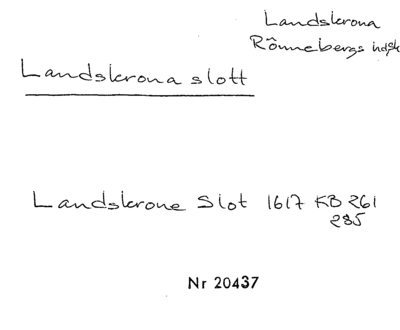 Landskrona
Rönnebergs hd sk
Landskrona slott
Landskrone Slot 1617 KB 261
285
Nr 20437